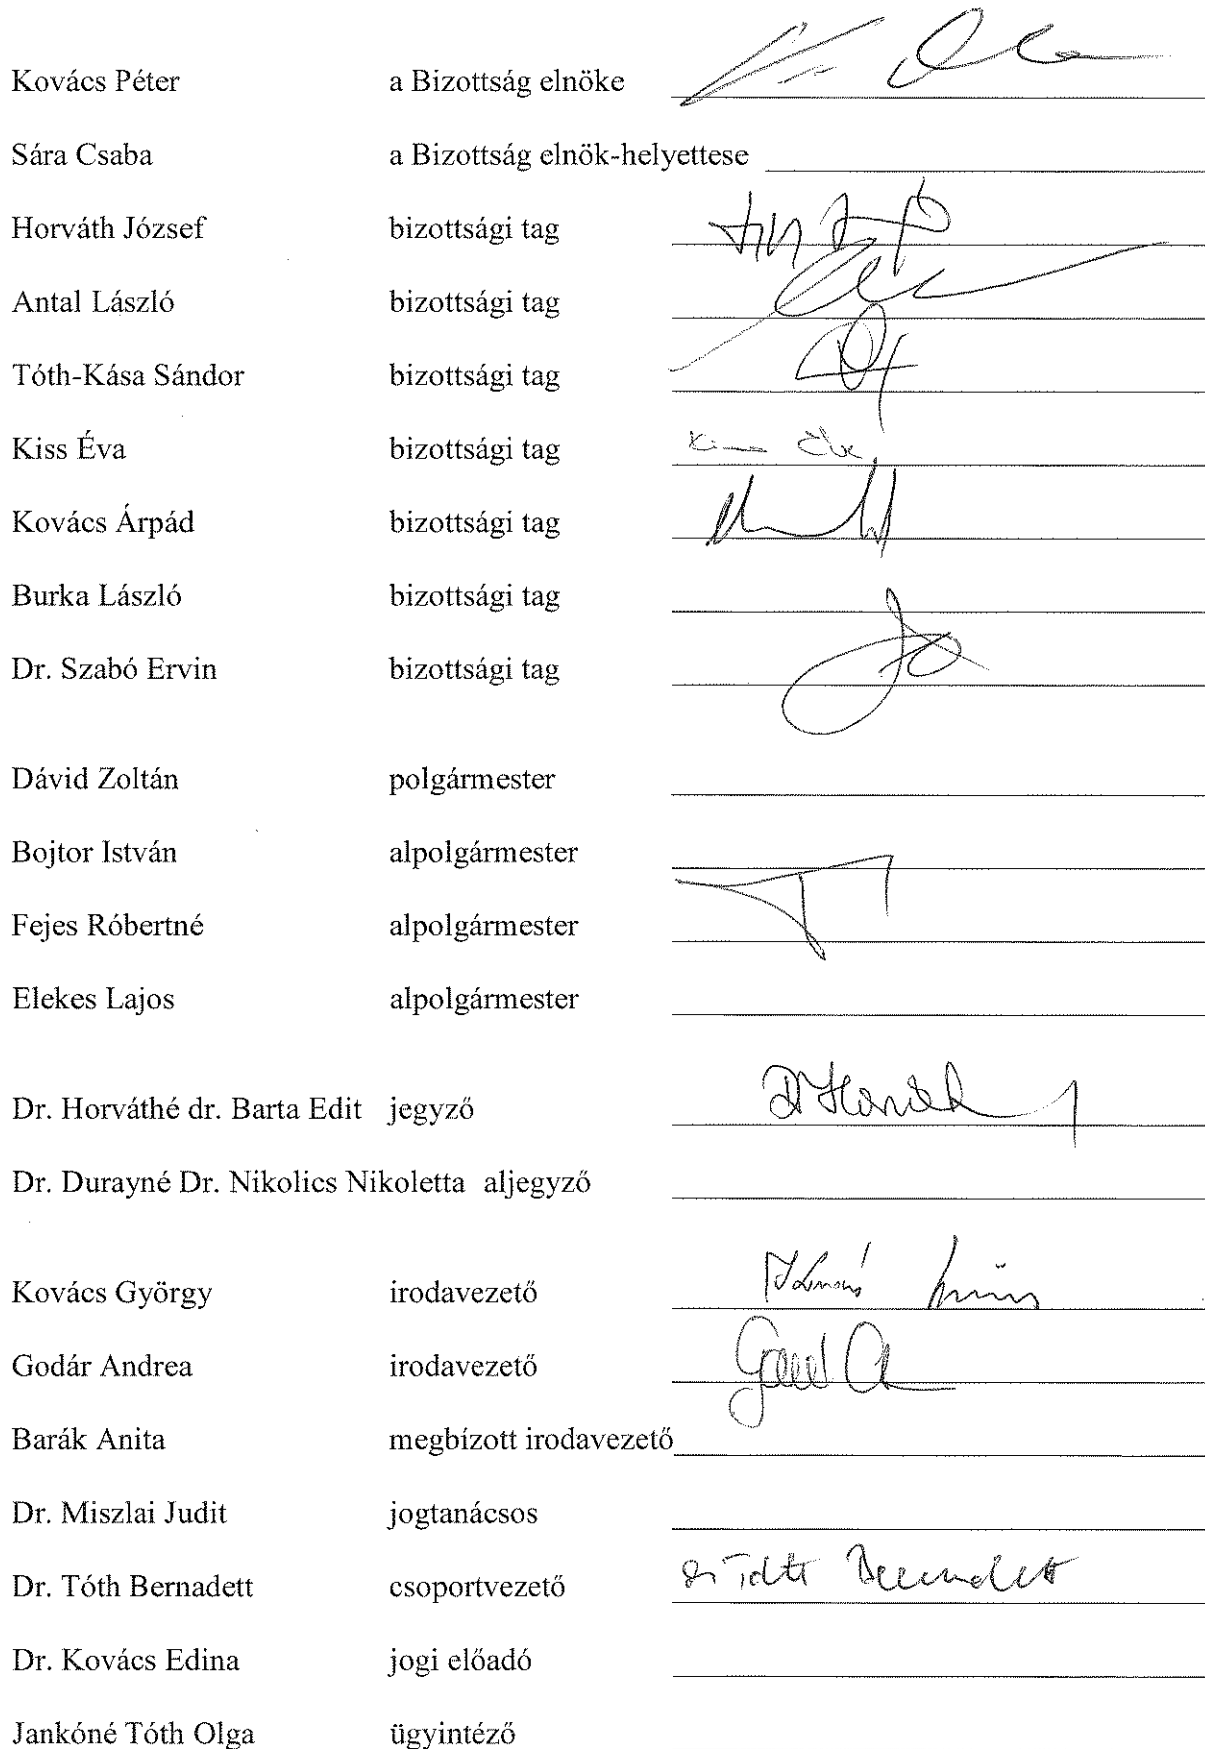 Kovács Péter a Bizottság elnöke
Sára Csaba a Bizottság elnök-helyettese
Horváth József bizottsági tag
Antal László bizottsági tag
Tóth-Kása Sándor bizottsági tag
Kiss Éva bizottsági tag Kiss Éva
Kovács Árpád bizottsági tag
Burka László bizottsági tag
Dr. Szabó Ervin bizottsági tag
Dávid Zoltán polgármester
Bojtor István alpolgármester
Fejes Róbertné alpolgármester
Elekes Lajos alpolgármester
Dr. Horváthé dr. Barta Edit jegyző
Dr. Durayné Dr. Nikolics Nikoletta aljegyző
Kovács György irodavezető
Godár Andrea irodavezető
Barák Anita megbízott irodavezető
Dr. Miszlai Judit jogtanácsos
Dr. Tóth Bernadett csoportvezető dr Tóth Bernadett
Dr. Kovács Edina jogi előadó
Jankóné Tóth Olga ügyintéző